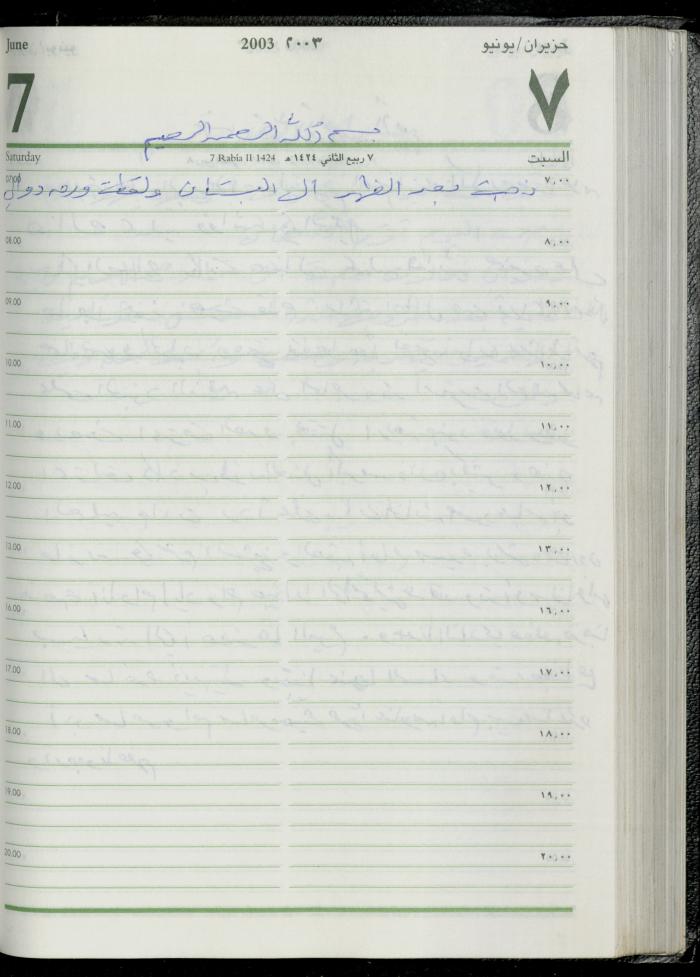 June 2003 ٢٠٠٣ حزيران/يونيو
7 ٧
بسم الله الرحمن الرحيم
Saturday 7 Rabia II 1424 ٧ ربيع الثاني ١٤٢٤ هـ السبت
07.00 ٧,٠٠
ذهبت بعد الظهر الى البستان ولقطت ورق دوالي
08.00 ٨,٠٠
09.00 ٩,٠٠
10.00 ١٠,٠٠
11.00 ١١,٠٠
12.00 ١٢,٠٠
13.00 ١٣,٠٠
16.00 ١٦,٠٠
17.00 ١٧,٠٠
18.00 ١٨,٠٠
19.00 ١٩,٠٠
20.00 ٢٠,٠٠